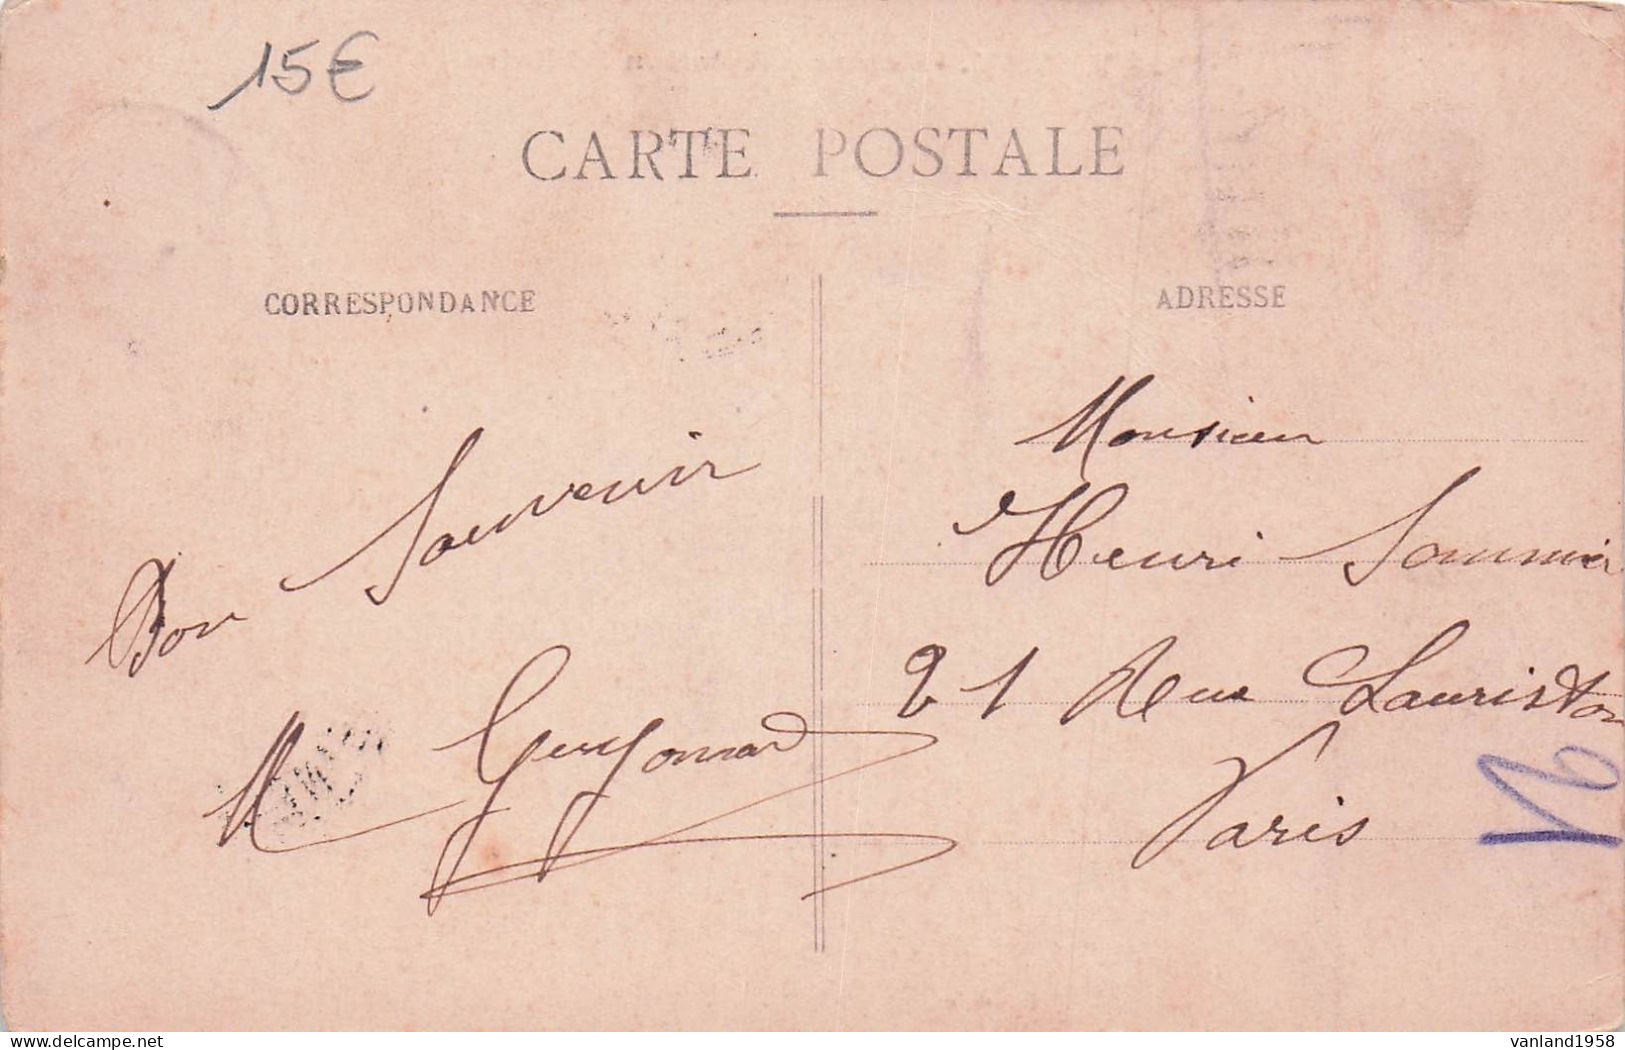 15€
CARTE POSTALE
CORRESPONDANCE
ADRESSE
Bon Souvenir
M Guyonnard
Monsieur
Henri Sommier
21 Rue Lauriston
Paris
16
delcampe.net
vanland1958